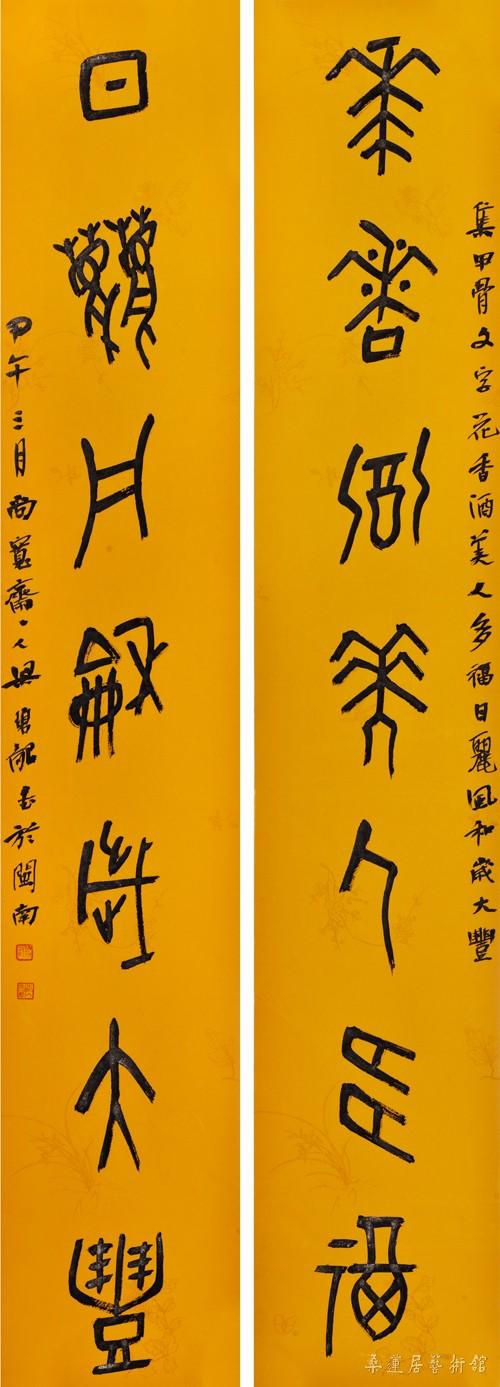 集甲骨文字花香酒美人多福日麗風和歲大豐
花香酒美人多福
日麗風和歲大豐
甲午三月尚寬齋主人
書於閩南
桑蓮居藝術館